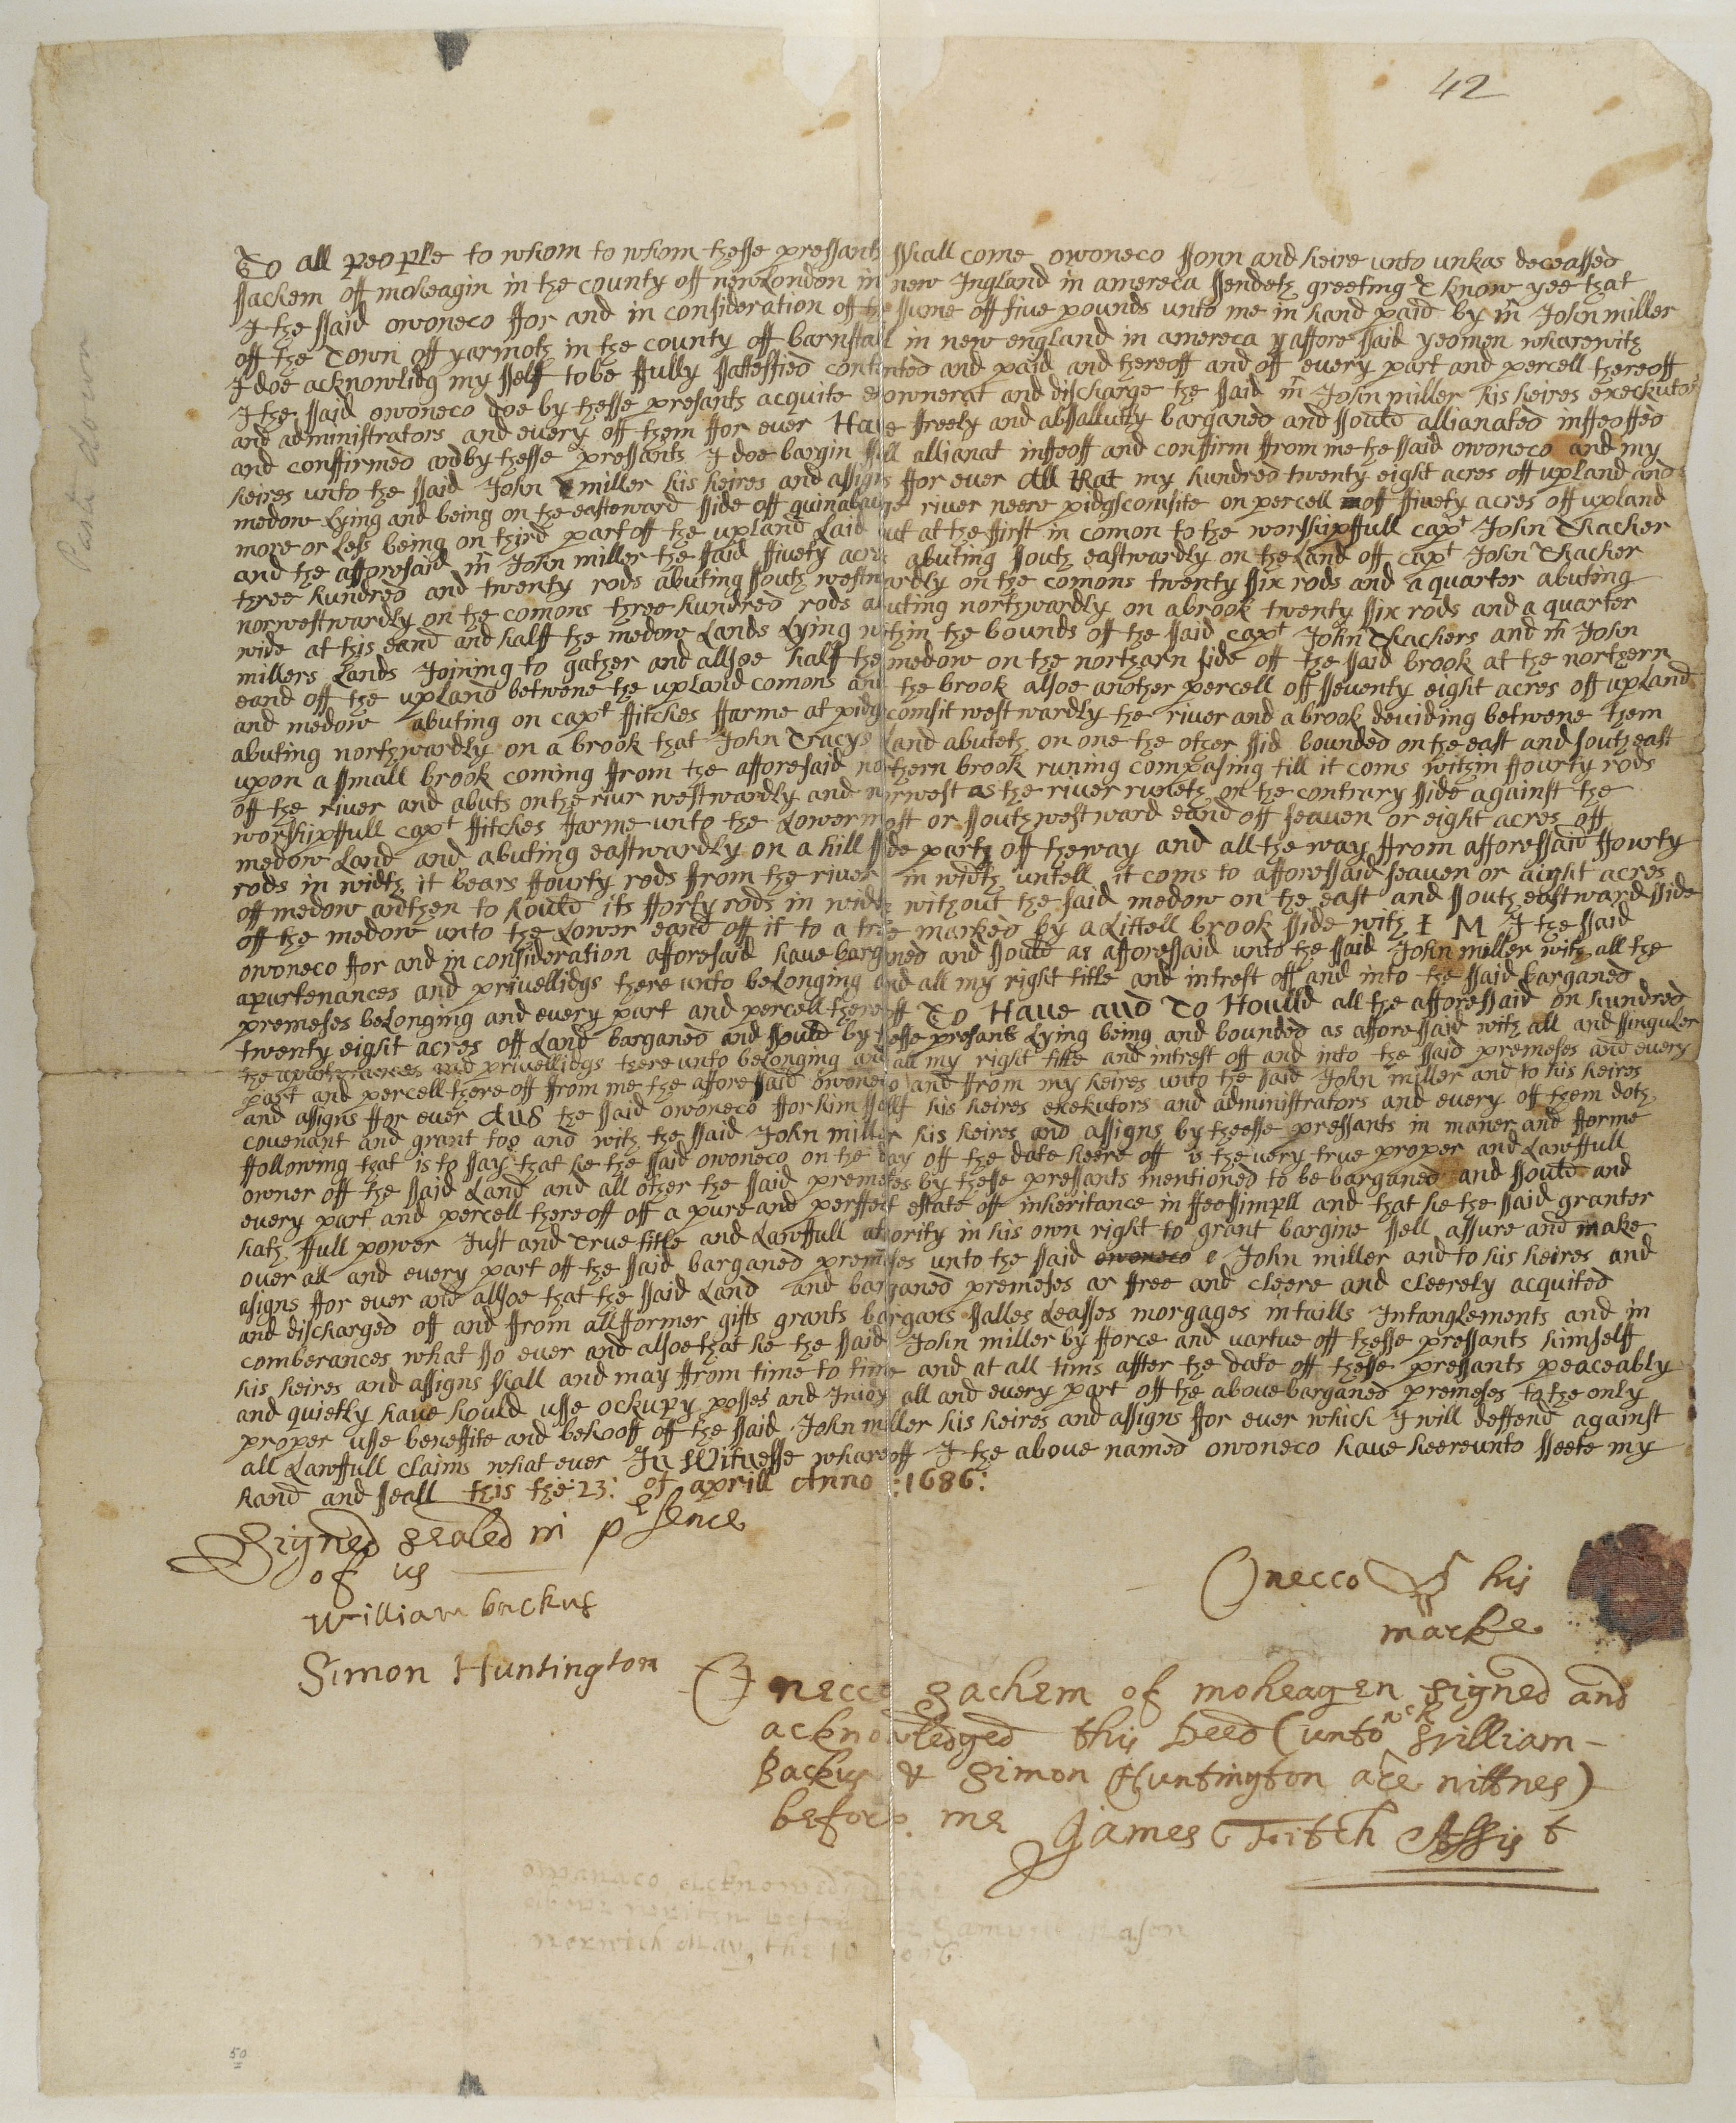 42
To all people to whom to whom thesse pressants shall come owoneco sonn and heire unto unkas deceassed
sachem off moheagin in the county off newLondon in new Ingland in amereca sendeth greeting & know yee that
I the said owoneco ffor and in consideration off the sume off five pounds unto me in hand paid by mr John miller
off the Town off yarmoth in the county off barnstall in new england in amereca yafforesaid yeomen wharewith
I doe acknowlidg my sself to be ffully sattesffied contented and paid and thereoff and off every part and percell thereoff
I the said owoneco doe by thesse presants acquite exownerat and discharge the said mr John miller his heires execkutors
and administrators and every off them ffor ever Have ffreely and absallutly barganed and sould allianated inffeoffed
and conffirmed and by thesse pressants I doe bargin sell allianat infeoff and conffirm ffrom me the said owoneco and my
heires unto the said John miller his heires and assigns ffor ever All that my hundred twenty eight acres off upland and
medow Lying and being on the eastoward side off quinabauge river neere pidgscomsite on percell off ffivety acres off upland
more or Less being on third part off the upland Laid out at the ffirst in comon to the worshipffull capt John Thacker
and the afforesaid mr John miller the said ffivety acres abuting south eastwardly on the Land off capt John Thacker
three hundred and twenty rods abuting south westwardly on the comons twenty six rods and a quarter abuting
norwestwardly on the comons three hundred rods abuting northwardly on a brook twenty six rods and a quarter
wide at this eand and halff the medow Lands Lying within the bounds off the said capt John Thackers and mr John
millers Lands Joining to gather and allsoe half the medow on the northarn side off the said brook at the northern
eand off the upland betwene the upland comons and the brook alsoe another percell off sseventy eight acres off upLand
and medow abuting on capt ffitches ffarme at pidgscomsit westwardly the river and a brook deviding betwene them
abuting northwardly on a brook that John Tracys Land abuteth on one the other sid bounded on the east and south east
upon a small brook coming ffrom the afforesaid northern brook runing compasing till it coms within ffourty rods
off the river and abuts on the rivr westwardly and norwest as the river runeth on the contrary side against the
worshipffull capt ffitches ffarme unto the Lowermost or southwestward eand off seaven or eight acres off
medow Land and abuting eastwardly on a hill side party off the way and all the way ffrom afforessaid ffourty
rods in width it bears ffourty rods ffrom the river in width untell it coms to afforessaid seaven or aight acres
off medow and then to hould its fforty rods in width without the said medow on the east and south eastward side
off the medow unto the Lower eand off it to a tree marked by a Littell brook side with I M I the said
owoneco ffor and in consideration afforesaid have barganed and sould as afforessaid unto the said John miller with all the
apurtenances and privellidgs there unto beLonging and all my right title and intrest off and into the said barganed
premeses beLonging and every part and percell thereoff To Have and To Houlld all the afforessaid on hundred
twenty eight acres off Land barganed and sould by thesse presants Lying being and bounded as afforessaid with all and singuler
the apurtenances and privellidgs there unto beLonging and all my right title and intrest off and into the said premeses and every
part and percell there off ffrom me the afforessaid owoneco and ffrom my heires unto the said John miller and to his heires
and assigns ffor ever And the said owoneco ffor him sself his heires exekutors and administrators and every off them doth
covenant and grant too and with the said John miller his heires and assigns by theesse pressants in maner and fforme
ffollowing that is to say that he the said owoneco on the day off the date heere off is the very true proper and Lawffull
owner off the said Land and all other the said premeses by thesse pressants mentioned to be barganed and sould and
every part and percell there off off a pure and perffeit estate off inheritance in ffeesimpll and that he the said granter
hath ffull power Just and True title and Lawffull athority in his own right to grant bargine sell assure and make
over all and every part off the said barganed premeses unto the said owoneco John miller and to his heires and
asigns ffor ever and allsoe that the said Land and barganed premeses ar ffree and cleere and cleerely acquited
and discharged off and ffrom all fformer gifts grants bargans salles Leasses morgages intaills Intanglements and in
comberances what so ever and alsoe that he the said John miller by fforce and vartue off thesse pressants himselff
his heires and assigns shall and may ffrom time to time and at all tims affter the date off thesse pressants peaceably
and quietly have hould usse ockupy posses and Injoy all and every part off the above barganed premeses to the only
proper usse beneffite and behooff off the said John miller his heires and assigns ffor ever which I will deffend against
all Lawffull claims what ever In Witnesse whareoff I the above named owoneco have heereunto seete my
hand and seall this the 23: of aprill Anno :1686:
Signed sealed in prsence
of us
William backus
Simon Huntington
Onecco his
marke
Onecco Sachem of moheagen signed and
acknowledged this deed (unto wch William
Backus & Simon Huntington are wittnes)
before me James Fitch Assist
owanaco acknowledged the
above writen before me Samuell Mason
norwich May the 10
Paste down
50